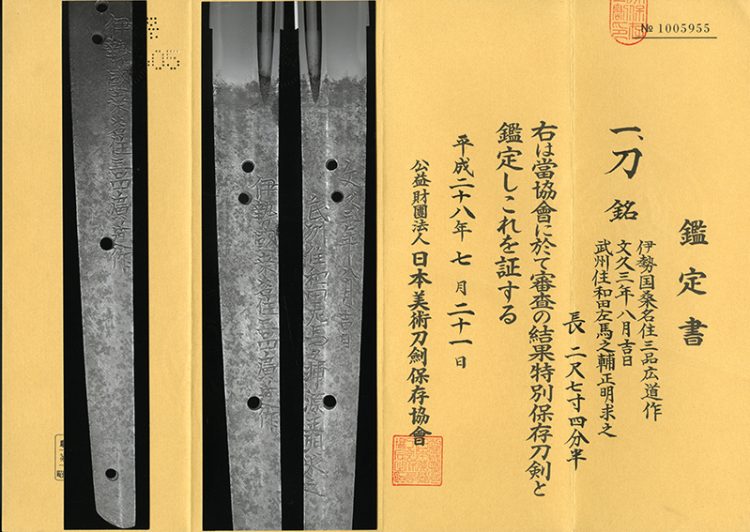 № 1005955
鑑定書
一、刀 銘
伊勢国桑名住三品広道作
文久三年八月吉日
武州住和田左馬之輔正明求之
長 二尺七寸四分半
右は當協會に於て審査の結果特別保存刀剣と
鑑定しこれを証する
平成二十八年 七月 二十一日
公益財團法人 日本美術刀劍保存協會